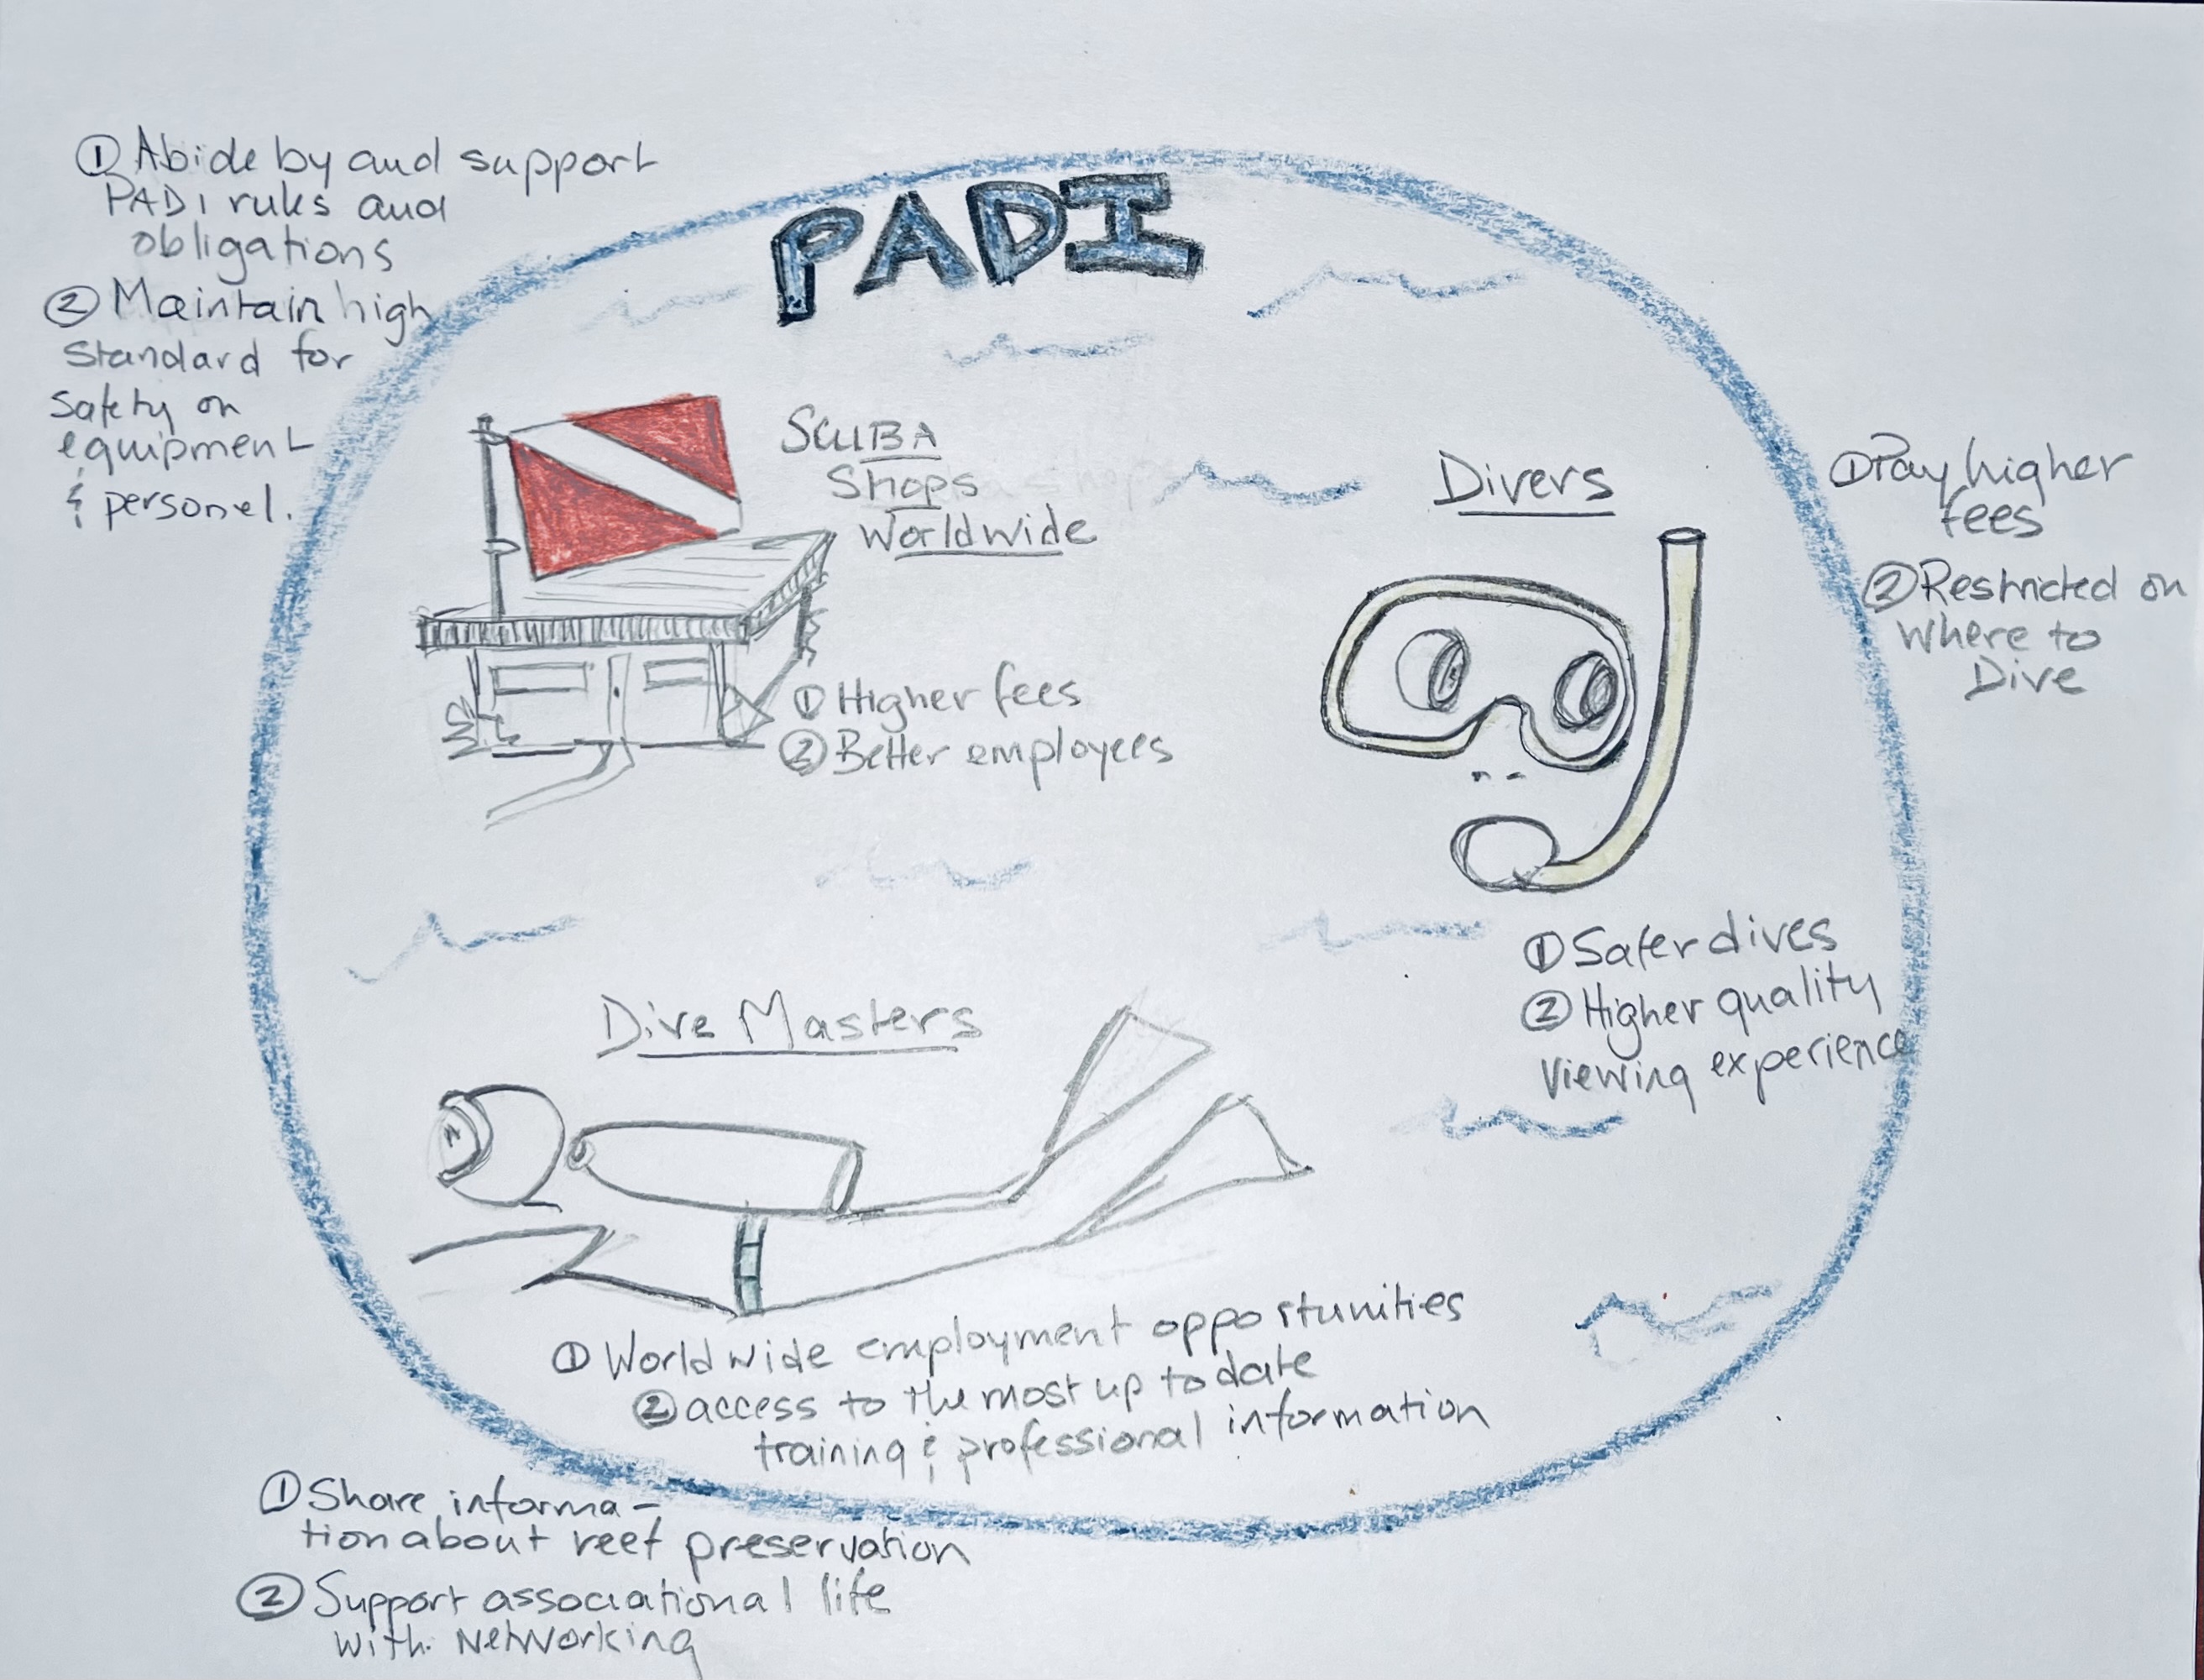 PADI
① Abide by and support
PADI rules and
obligations
② Maintain high
standard for
safety on
equipment
& personel.
SCUBA
Shops
Worldwide
① Higher fees
② Better employees
Divers
① Pay higher
fees
② Restricted on
where to
Dive
① Safer dives
② Higher quality
viewing experience
Dive Masters
① World wide employment opportunities
② access to the most up to date
training & professional information
① Share informa-
tion about reef preservation
② Support associational life
with Networking